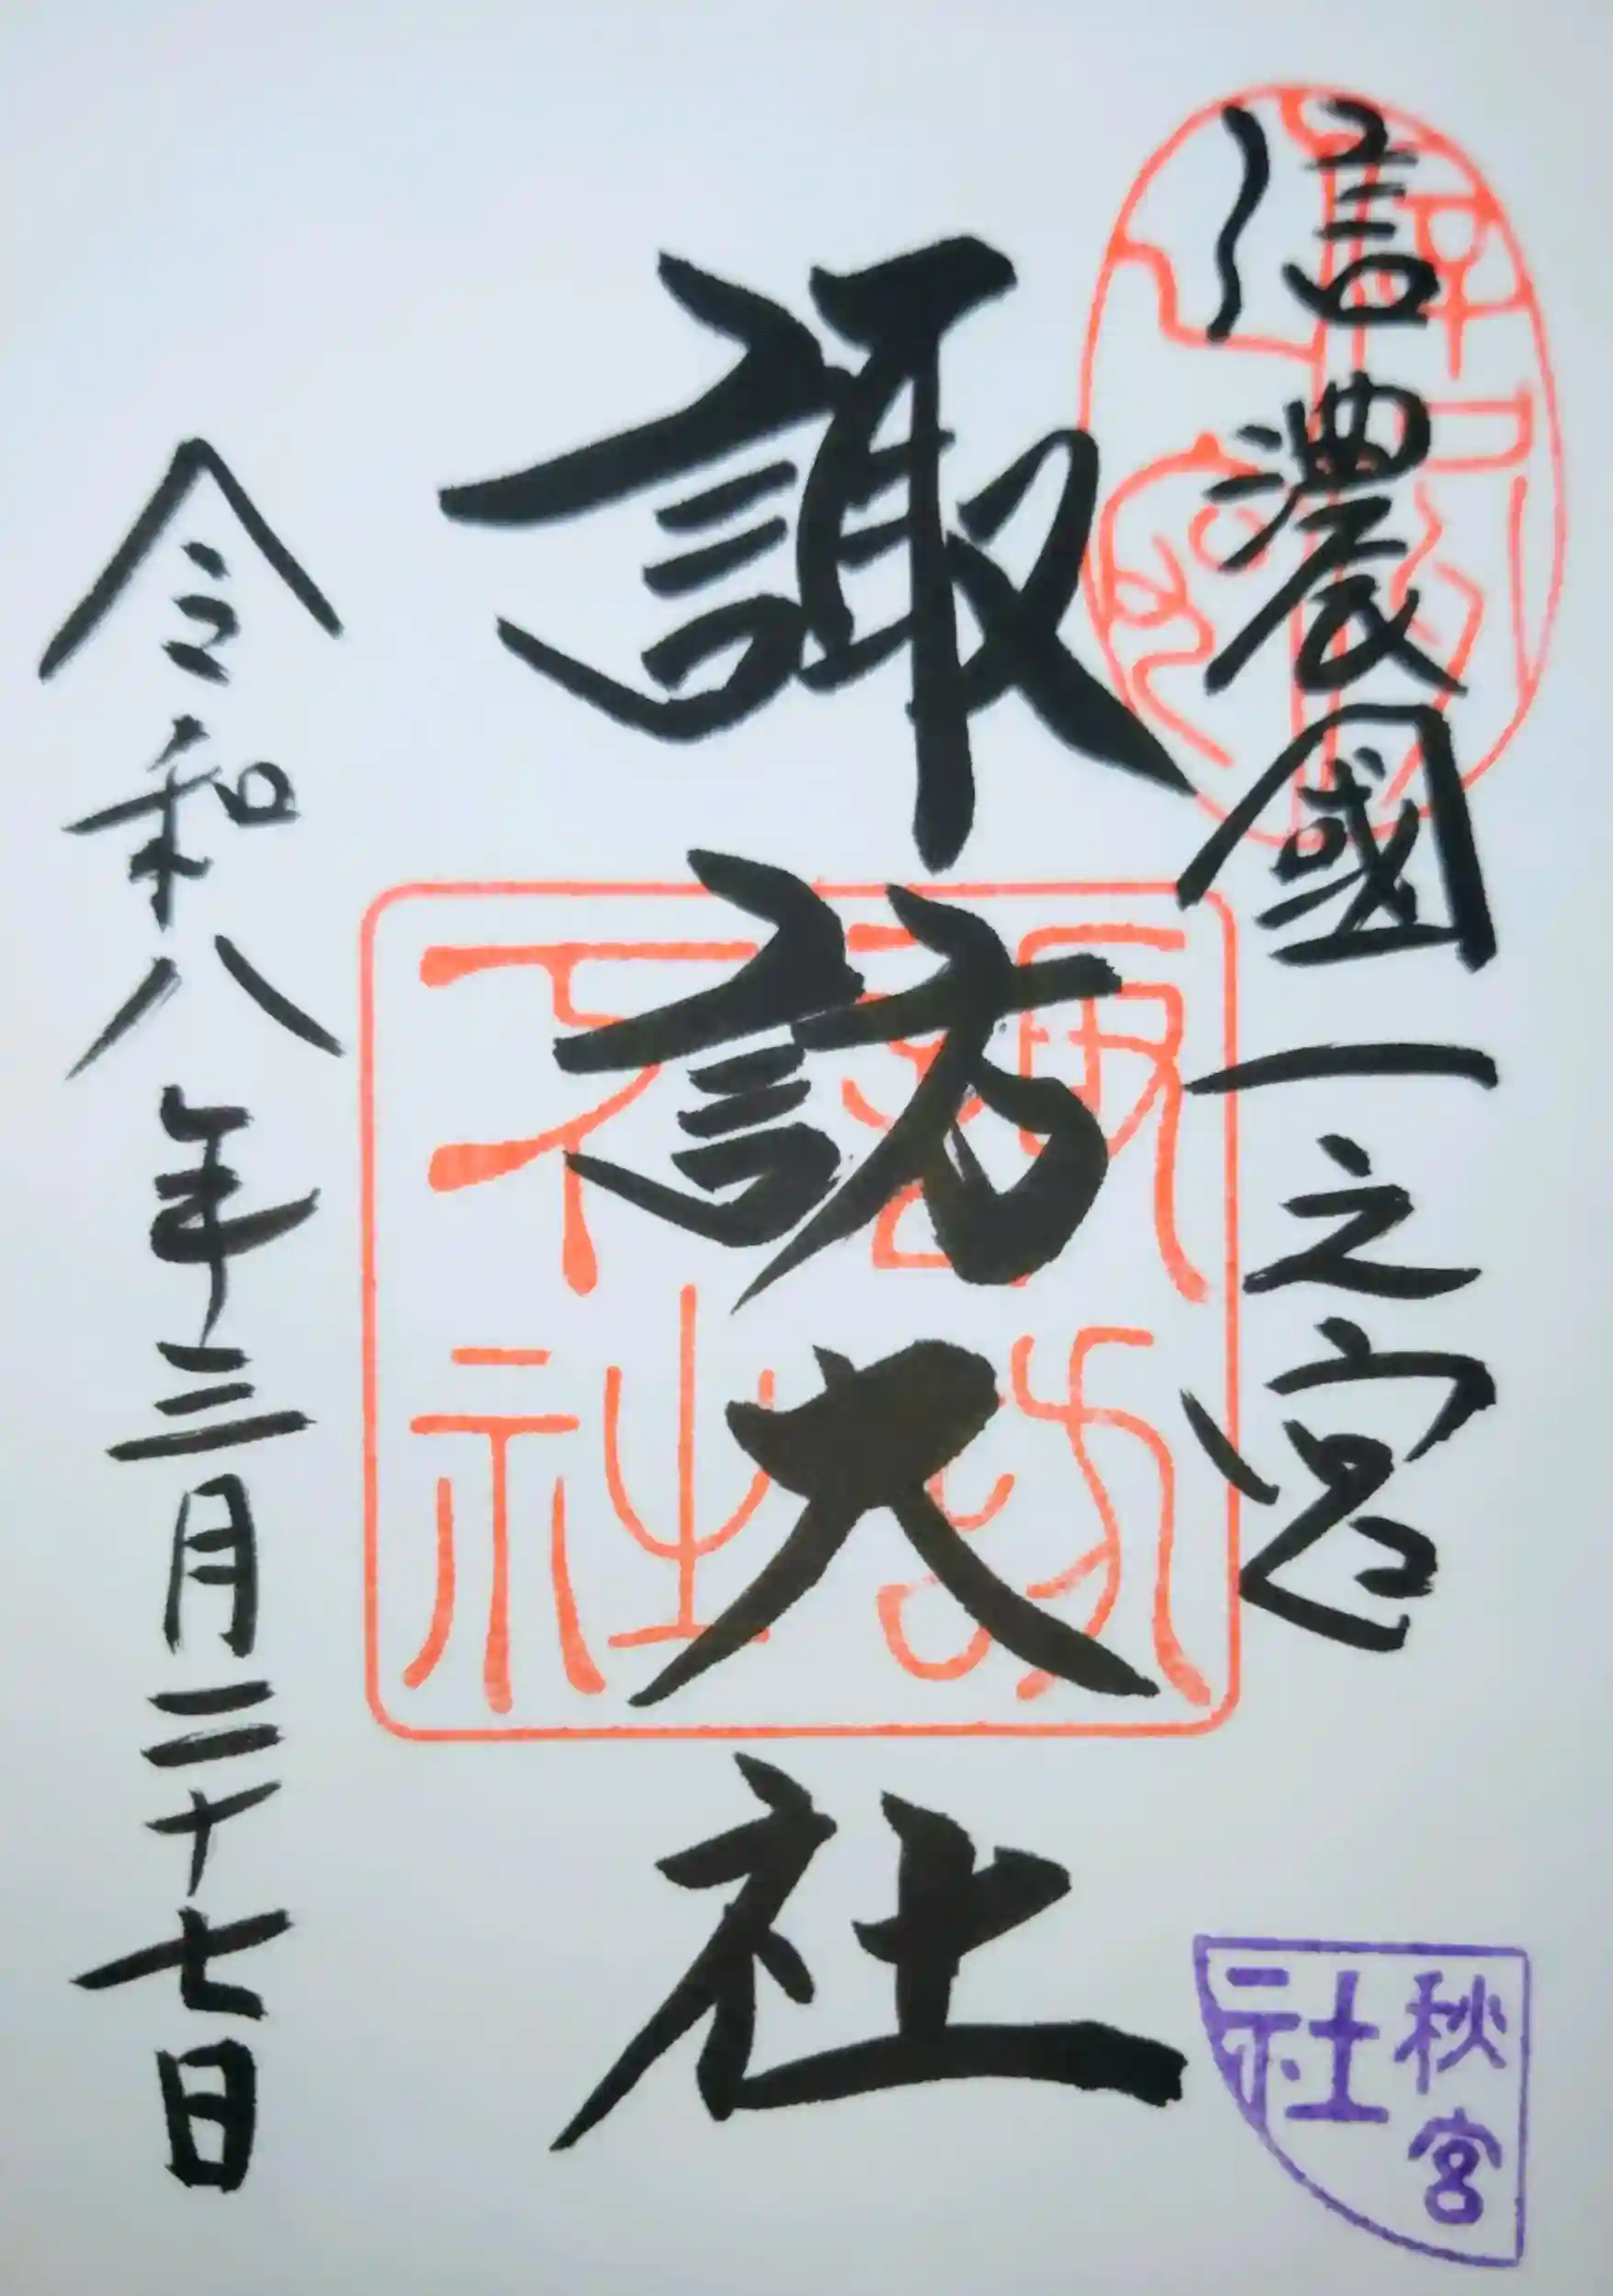 信濃國一之宮
諏訪大社
令和八年三月二十七日
諏訪大社
秋宮
社